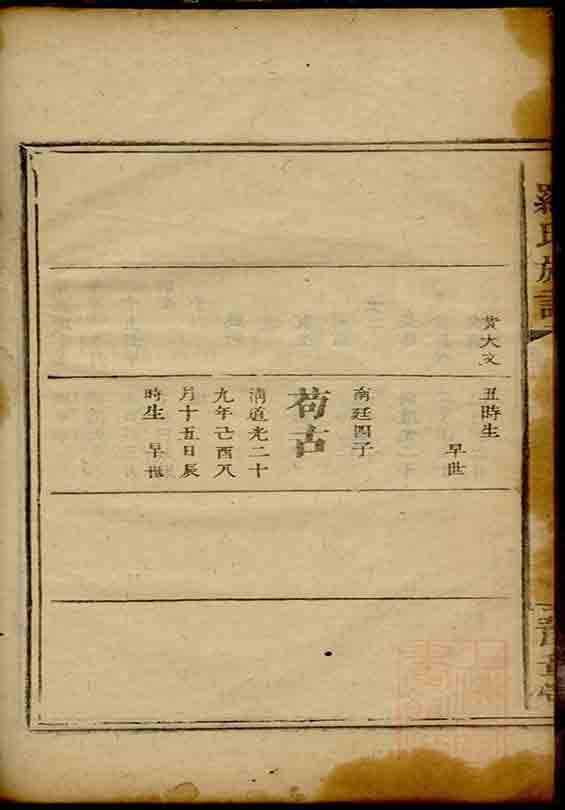 羅氏族譜
黄大文
丑時生
早世
南廷四子
苟古
清道光二十
九年己酉八
月十五日辰
時生 早世